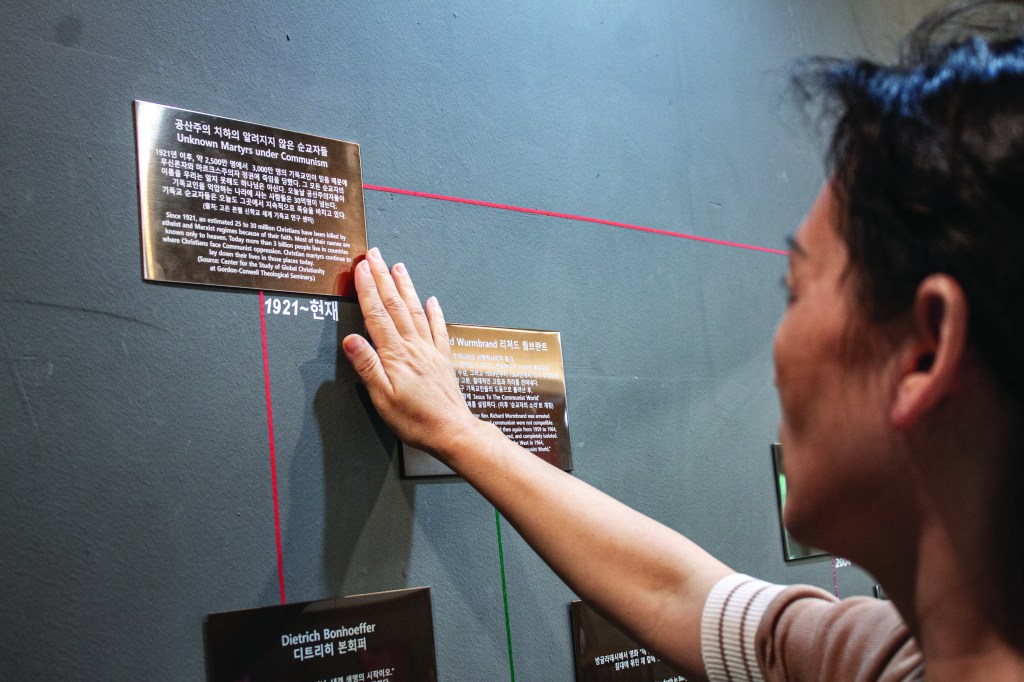 공산주의 치하의 알려지지 않은 순교자들
Unknown Martyrs under Communism
1921년 이후, 약 2,500만 명에서 3,000만 명의 기독교인이 믿음 때문에
무신론자와 마르크스주의자 정권에 죽임을 당했다. 그 모든 순교자의
이름을 우리는 알지 못해도 하나님은 아신다. 오늘날 공산주의자들이
기독교인을 억압하는 나라에 사는 사람들은 30억명이 넘는다.
기독교 순교자들은 오늘도 그곳에서 지속적으로 목숨을 바치고 있다.
(출처: 고든 콘웰 신학교 세계 기독교 연구 센터)
Since 1921, an estimated 25 to 30 million Christians have been killed by
atheist and Marxist regimes because of their faith. Most of their names are
known only to heaven. Today more than 3 billion people live in countries
where Christians face Communist oppression. Christian martyrs continue to
lay down their lives in those places today.
(Source: Center for the Study of Global Christianity
at Gordon-Conwell Theological Seminary.)
1921~현재
Wurmbrand 리처드 웜브란트
고문, 절대적인 고립과 격리를 견뎌냈다.
기독교인들의 도움으로 풀려난 후,
'Jesus To The Communist World'
설립했다. (이후 '순교자의 소리'로 개칭)
Rev. Richard Wurmbrand was arrested
communism were not compatible.
then again from 1959 to 1964,
and completely isolated.
West in 1964,
World."
Dietrich Bonhoeffer
디트리히 본회퍼
생명의 시작이오."
방글라데시에서 영화
침대에 묶인 채